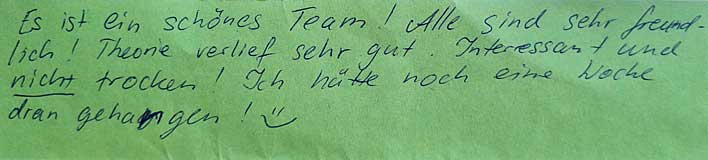 Es ist ein schönes Team! Alle sind sehr freund-
lich! Theorie verlief sehr gut. Interessant und
nicht trocken! Ich hätte noch eine Woche
dran gehangen! :)